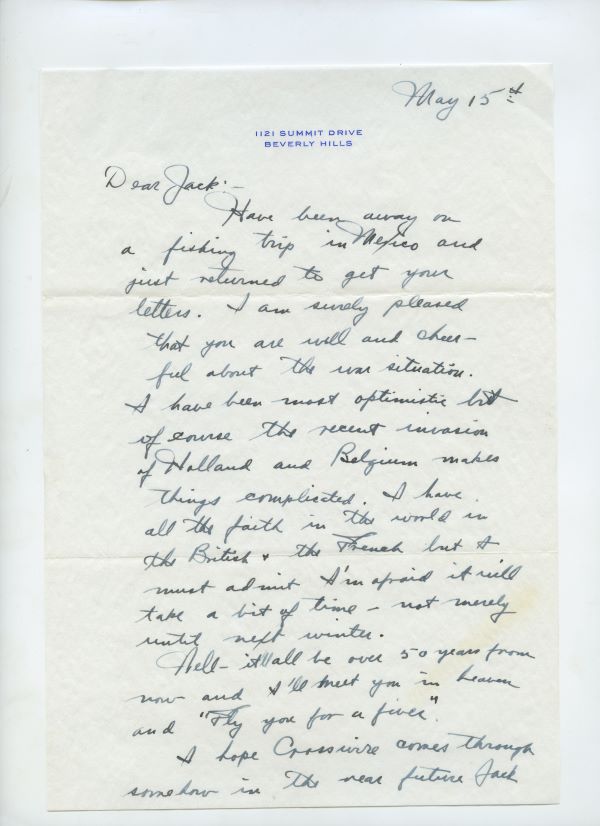 May 15th
1121 SUMMIT DRIVE
BEVERLY HILLS
Dear Jack:-
Have been away on
a fishing trip in Mexico and
just returned to get your
letters. I am surely pleased
that you are well and cheer-
ful about the war situation.
I have been most optimistic but
of course the recent invasion
of Holland and Belgium makes
things complicated. I have
all the faith in the world in
the British & the French but I
must admit I'm afraid it will
take a bit of time - not merely
until next winter.
Well - it'll all be over 50 years from
now and I'll meet you in heaven
and "Fly you for a fiver".
I hope Crosswire comes through
somehow in the near future Jack